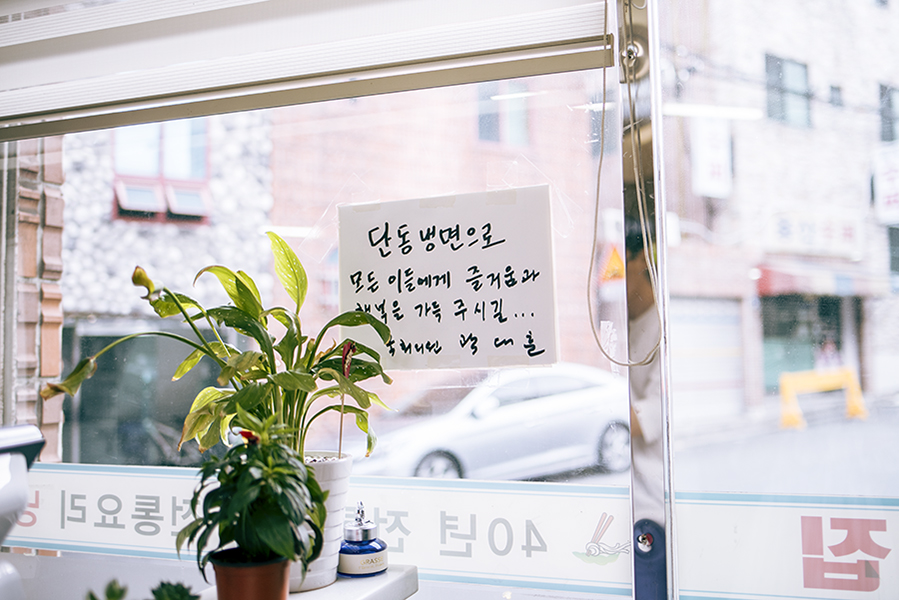 단동냉면으로
모든 이들에게 즐거움과
행복을 가득 주시길...
국회의원 곽 대 훈
집 40년 전통요리